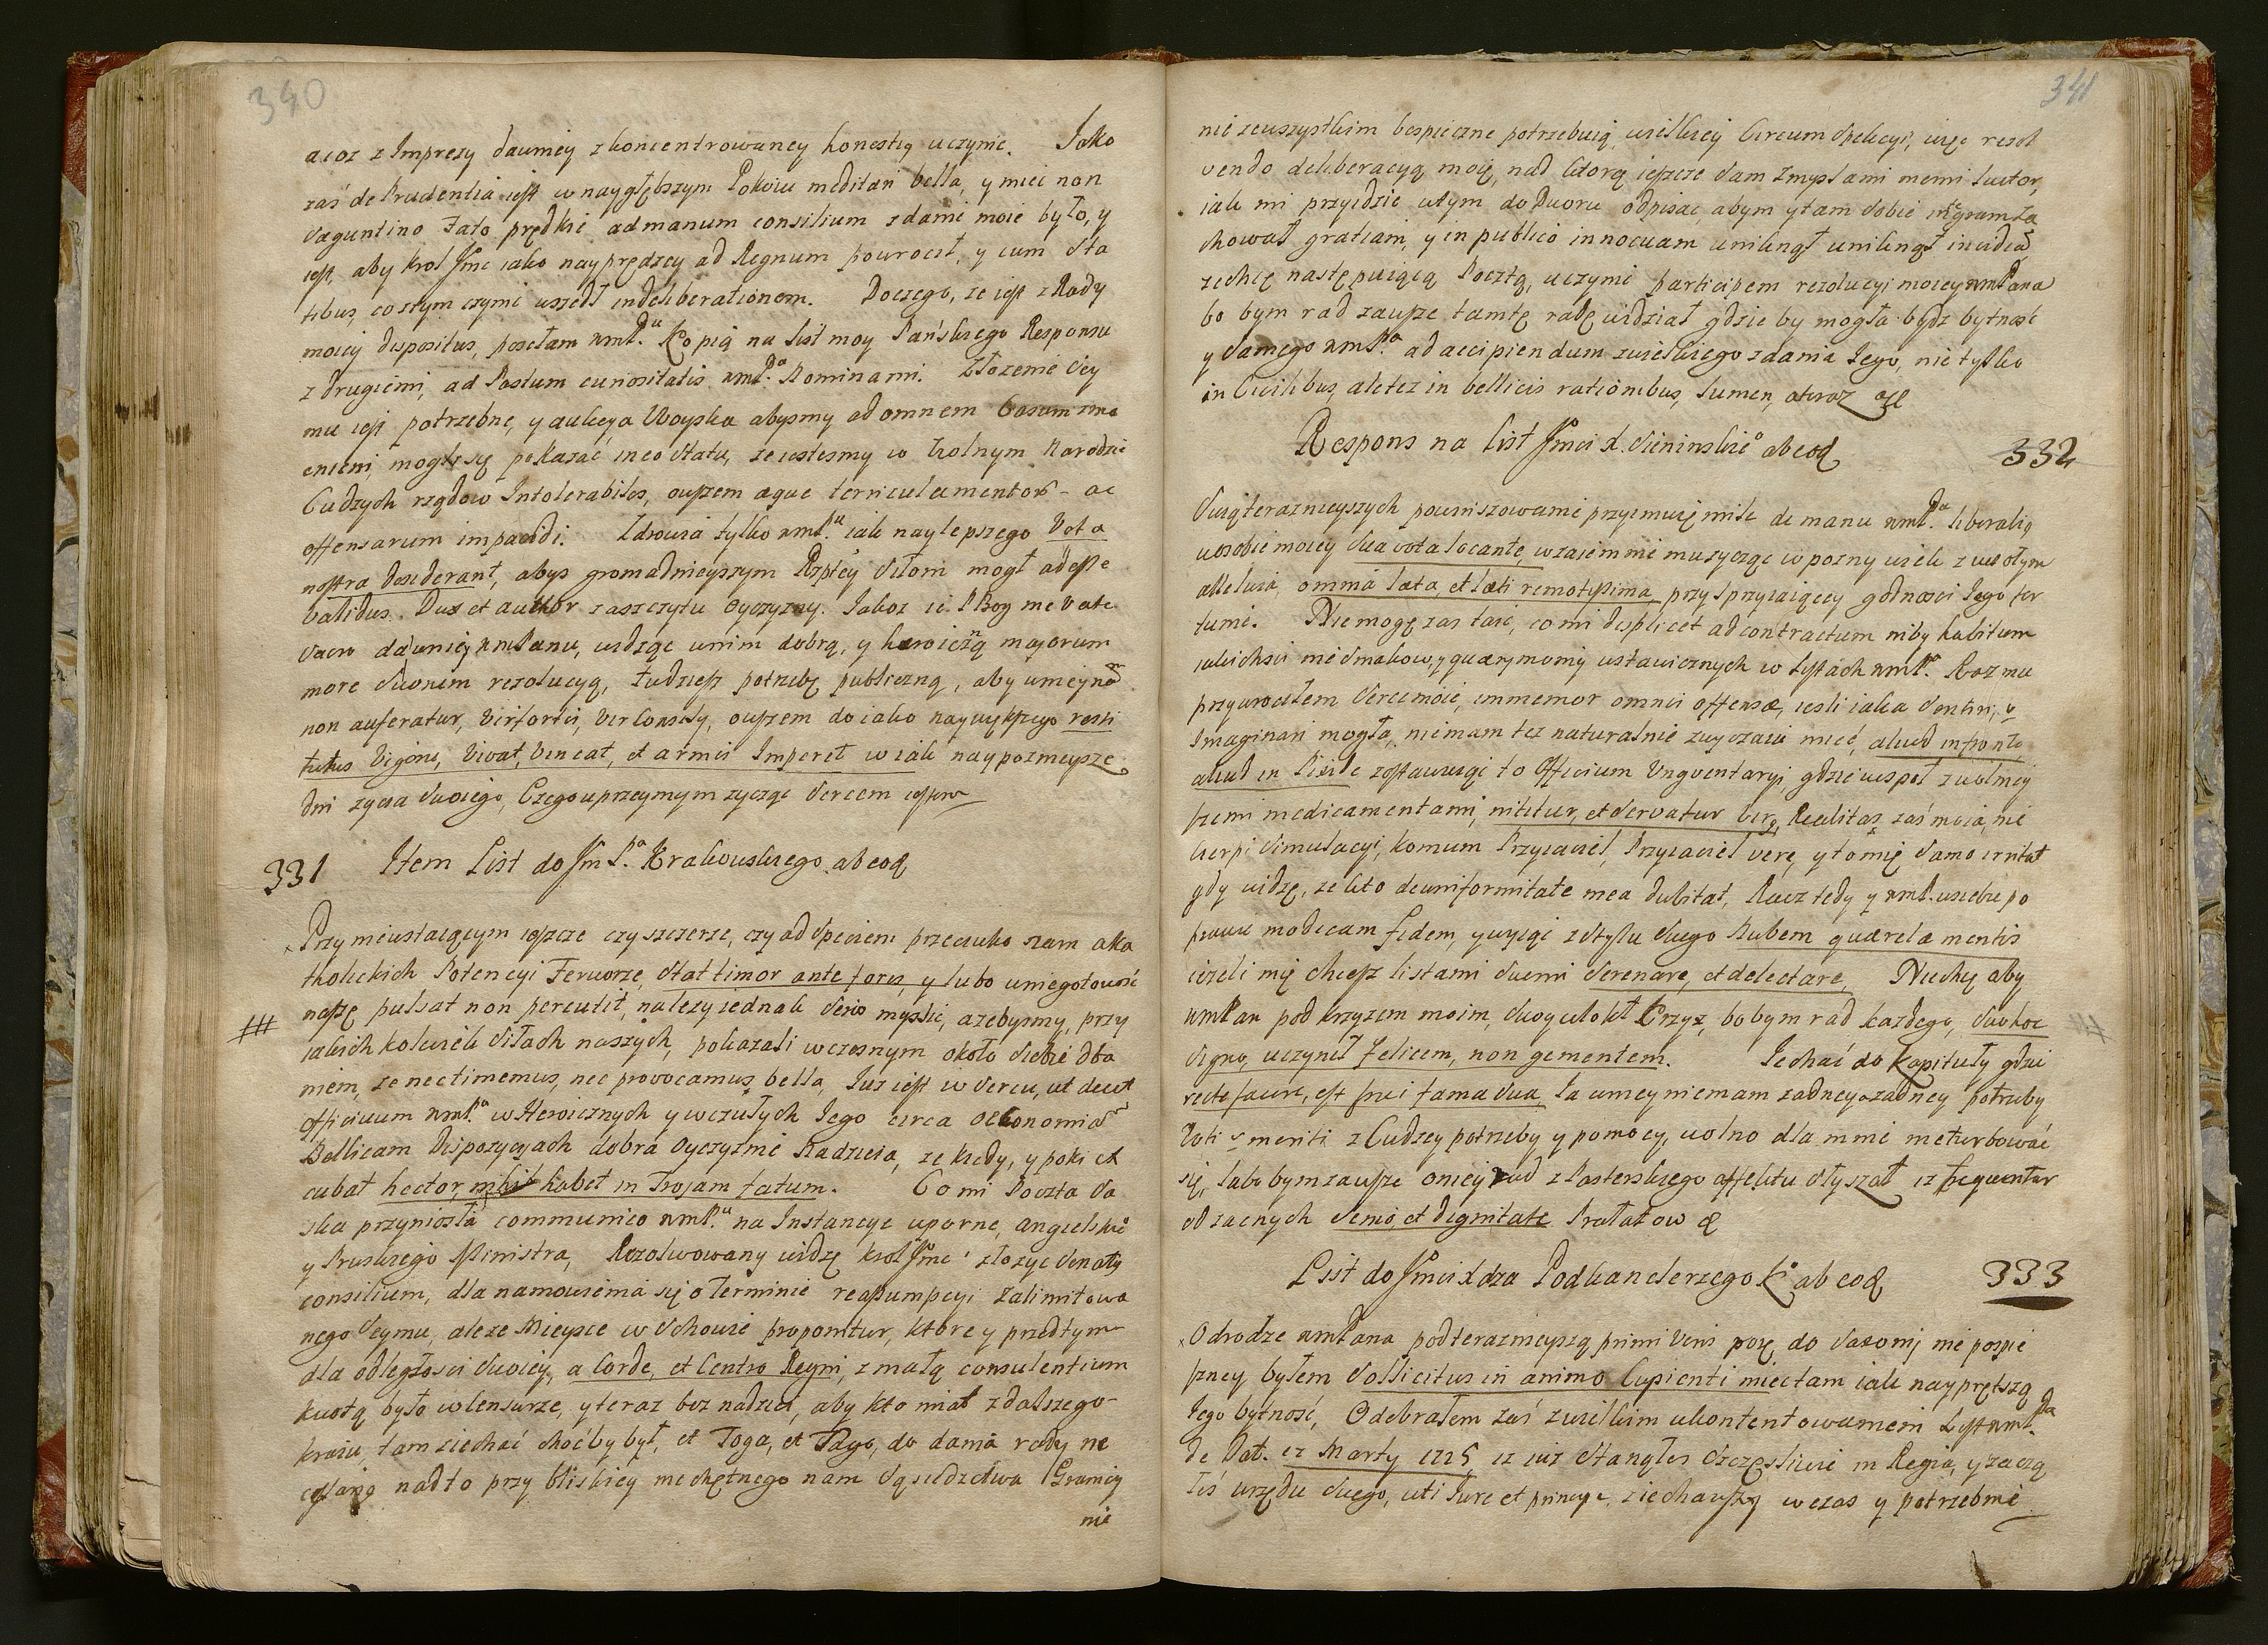 340
acoz z Imprezy dawniey zkoncentrowaney honestią uczynic. Jako
zaś de Prudentia iest w naygłębszym Pokoiu meditari bella, y mieć non
Saguntino Fato prędkie ad manum consilium zdanie moie było, y
iest, aby krol Jmc iako nayprędzey ad Regnum powrocił, y cum Sta
tibus, co z tym czynić wszedł in deliberationem. Do czego, ze iest z Rady
moiey dispositus, posełam wmP.u Kopią na list moy Pańskiego Responsu
z drugiemi, ad Pastum curiositatis wmP.a Nominami. Złozenie Sey
mu iest potrzebne, y aukcya Woyska abysmy ad omnem Casum zma
cnieni, mogli się pokazać in eo Statu, ze iestesmy w Wolnym Narodzie
Cudzych rządow Intolerabiles, owszem aeque terriculamentor ac
offensarum impavidi. Zdrowia tylko wmP.u iak naylepszego Vota
nostra desiderant, abys gromadnieyszym Rzptey Siłom mogł adesse
validus Dux et author zaszczytu Oyczyzny. Jakoz ie P Bog
dawniey wmPanu, widząc w nim dobrą, y heroiczną majorum
more Suorum rezolucyą, tudziesz potrzebę publiczną, aby
non auferatur, Vir fortis, Vir Consily, owszem do iako naywiększego resti
tutus Vigoru, Vivat, Vincat, et armis Imperet w iak naypoznieysze
dni zycia Swoiego, Czego uprzeymym zycząc Sercem iestem
331 Item List do Jm P.a Krakowskiego ab eoq
Przy nieustaiącym ieszcze czy szczerze, czy ad Speciem przeciwko nam aka
tholickich Potencyi Ferworze, Stat timor ante fores, y lubo w niegotowość
naszę pulsat non percutit, nalezy iednak Serio mysslić, azebysmy, przy
iakich kolwiek Siłach naszych, pokazali wczesnym około Siebie dba
niem, ze nec timemus, nec provocamus bella, Iuz iest w Sercu, ut decet
officium wmP.a w Heroicznych y wczułych Jego circa Oeconomiam
Bellicam Dispozycyach dobra Oyczyznie Nadzieia, ze kiedy, y poki
cubat hector, nihil habet in Trojam fatum. Co mi Poczta Sa
ska przyniosła communico wmP.u na Instancye uporne, angielskie
y Pruskiego Ministra, Rezolwowany widzę krol Jmc złozyc Senatus
consilium, dla namowienia się o terminie reassumpcyi Zalimitowa
nego Seymu, ale ze Mieysce w Schowie proponitur, ktore y przedtym
dla odległości Swoiey, a Corde, et Centro Regni, z małą consulentium
kwotą było w Censurze, y teraz bez nadziei, aby kto miał z dalszego
kraiu, tam ziechać choćby był, et Toga, et Sago, do dania rady ne
cessario nadto przy bliskiey niechętnego nam Sąsiedztwa Granicy
nie
341
nie zewszystkim bespieczne potrzebuią, wielkiey Circumspekcyi, więc resol
vendo deliberacyą moię, nad ktorą ieszcze Sam z mysslami memi luctor,
iak mi przyidzie w tym do Dworu odpisac, abym y tam Sobie integram za
chował gratiam, y in publico innocuam uniknął uniknął invidiam
zechcę następuiącą Pocztą, uczynić participem rezolucyi moiey wmPana
bo bym rad zawsze tamtę radę widział gdzie by mogła bydz bytność
y Samego wmP.a ad accipiendum z wielkiego zdania Jego, nie tylko
in Civilibus, ale tez in bellicis rationibus, lumen, oteraz etc
Respons na list Jmci X. Sieninskie° ab eoq 332
Swiąt teraznieyszych powinszowanie przyimuię mile de manu wmP.a liberalis
w osobie moiey Sua vota locante, wzaiemnie muzyczę w pozny wiek z wesołym
alleluia, omnia laeta, et laeti remotissima, przy sprzyiaiącey godności Jego for
tunie. Nie mogę zas taić, co mi displicet ad contractum niby habitum
iakichsci nie Smakow, y quaerymonij ustawicznych w listach wmP.a Raz mu
przywrociłem Serce moie, immemor omnis offensae, iesli iaka Sentiri, v
Imaginari mogła, nie mam tez naturalnie zwyczaiu mieć, aliud in fronte,
aliud in Corde zostawuiąc to Officium Ungventaryj, gdzie wespoł z wolniey
szemi medicamentami, nititur, et Servatur, Realitas zaś moia nie
cierpi Simulacyi, komum Przyiaciel, Przyiaciel vere, y to mię Samo irritat
gdy widzę, ze kto de uniformitate mea dubitat, Racz tedy y wmP. wsiebie po
prawić modicam fidem, y wyiąć ze Stylu Swego Nubem quaerelae mentis
iezeli mię chcesz listami Swemi Serenare, et delectare, Niechcę aby
wmPan pod krzyzem moim, Swoy wlokł Krzyz, bobym rad kazdego, Sub hoc
Signo, uczynił felicem, non gementem. Iechać do Kapituły gdzie
recte facere, est frui fama sua Ia w mey niemam zadney a zadney potrzeby
Voti v meriti z Cudzey potrzeby y pomocy, wolno dla mnie nieturbować
się, lubo bym zawsze oniey rad z Pasterskiego affektu Słyszał iz frequentur
od zacnych Senio, et dignitate Prałatow etc
List do Jmci Xdza Podkanclerzego K° ab eoq 333
O drodze wmPana pod teraznieyszą primi Veris porę do Saxonij nie pospie
szney byłem Sollicitus in animo Cupienti mieć tam iak nayprętszą
Jego bytność, Odebrałem zaś z wielkim ukontentowaniem List wmP.a
de Dat. 12 Marty 1725, iz iuz Stanąłes Szczęśliwie in Regia, y zaczą
łeś urzędu Swego, uti Jure et principe, ziechawszy wczas y potrzebnie